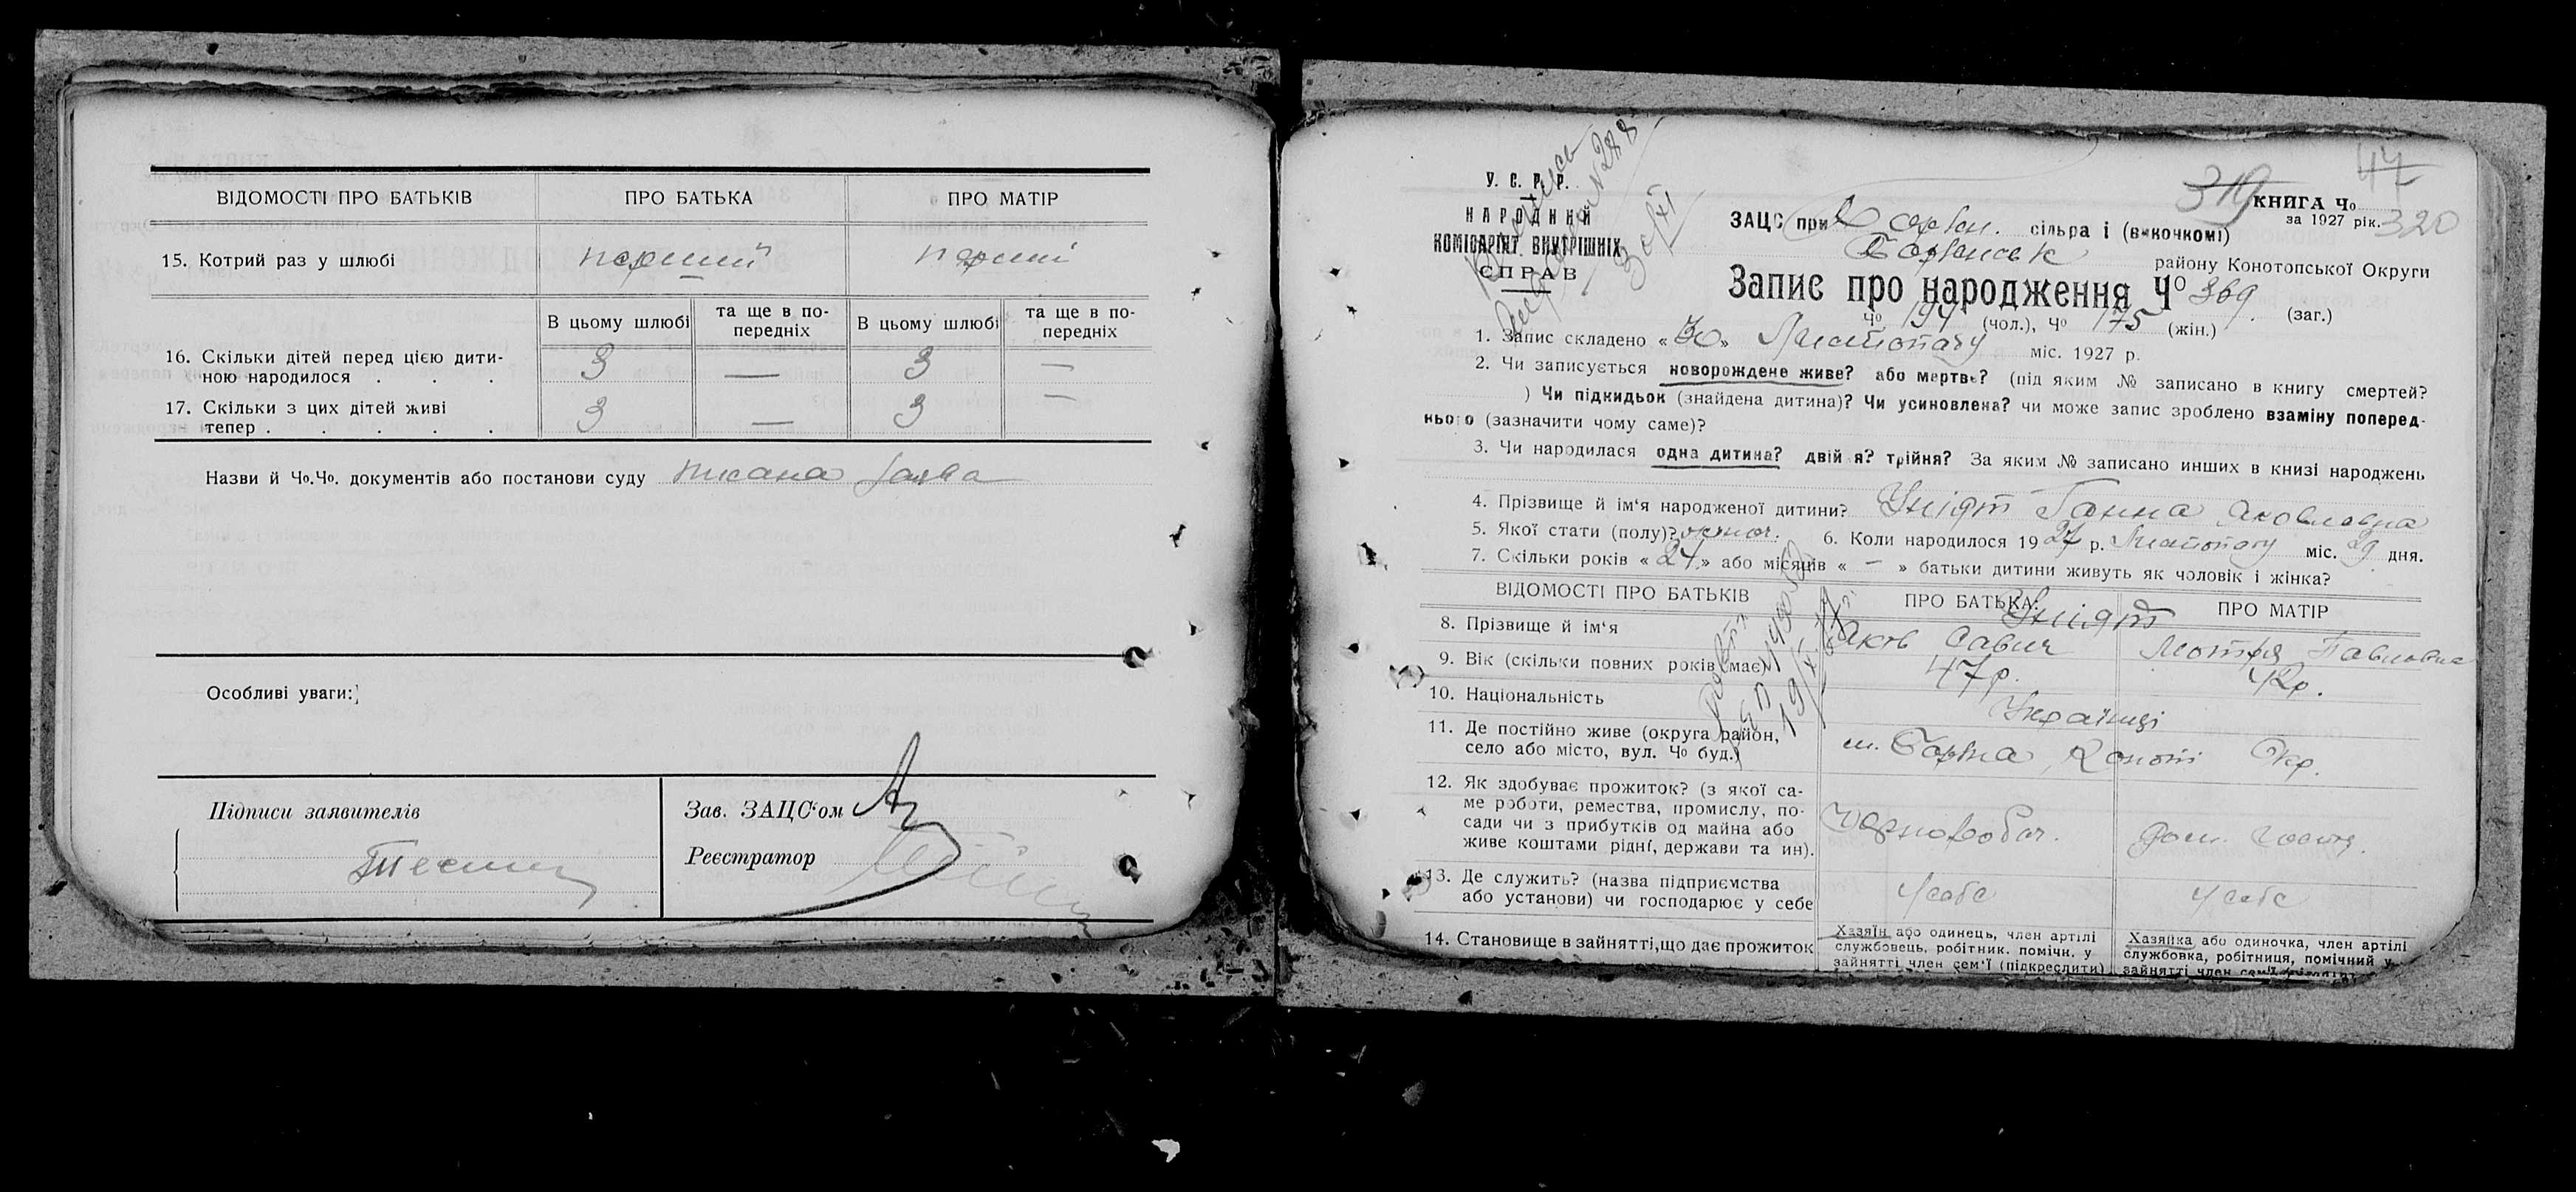 ВІДОМОСТІ ПРО БАТЬКІВ ПРО БАТЬКА ПРО МАТІР
15. Котрий раз у шлюбі перший перші
В цьому шлюбі та ще в попередніх В цьому шлюбі та ще в попередніх
16. Скільки дітей перед цією дити-
ною народилося . . . 3 — 3 —
17. Скільки з цих дітей живі
тепер . . . . . 3 — 3 —
Назви й Чо.Чо. документів або постанови суду писана заява
Особливі уваги:
Підписи заявителів
Зав. ЗАЦС'ом
Реєстратор
44
319
У. С. Р. Р.
НАРОДНИЙ
КОМІСАРІЯТ ВНУТРІШНІХ
СПРАВ
КНИГА Чо
за 1927 рік. 320
ЗАЦС при сільра і (виконкомі)
району Конотопської Округи
Запис про народження Чо 369 (заг.)
Чо 194 (чол.), Чо 175 (жін.)
1. Запис складено « 30 » Листопаду міс. 1927 р.
2. Чи записується новорождене живе? або мертве? (під яким № записано в книгу смертей?
) Чи підкидьок (знайдена дитина)? Чи усиновлена? чи може запис зроблено взаміну поперед-
нього (зазначити чому саме)?
3. Чи народилася одна дитина? двійня? трійня? За яким № записано инших в книзі народжень
4. Прізвище й ім'я народженої дитини? Уніят Ганна Яковлевна
5. Якої стати (полу)? жіноч. 6. Коли народилося 1927 р. Листопаду міс. 29 дня.
7. Скільки років « 24 » або місяців « — » батьки дитини живуть як чоловік і жінка?
ВІДОМОСТІ ПРО БАТЬКІВ ПРО БАТЬКА: ПРО МАТІР
Уніят
8. Прізвище й ім'я Яків Савич Мотря Павловна
9. Вік (скільки повних років має) 47р. 42р.
10. Національність Українці
11. Де постійно живе (округа район,
село або місто, вул. Чо буд.) м. Борзна, Коноп. Окр.
12. Як здобуває прожиток? (з якої са-
ме роботи, ремества, промислу, по-
сади чи з прибутків од майна або
живе коштами рідні, держави та ин). Чорнороб. Дом. госп.
13. Де служить? (назва підприємства
або установи) чи господарює у себе у себе у себе
14. Становище в зайнятті, що дає прожиток
Хазяїн або одинець, член артілі
службовець, робітник. помічн. у
зайнятті член сем'ї (підкреслити)
Хазяйка або одиночка, член артілі
службовка, робітниця, помічний у
зайнятті член сем'ї